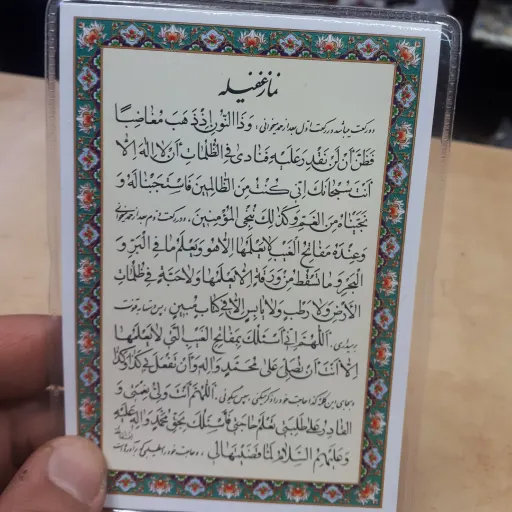 نماز غفیله
دو رکعت میباشد در رکعت اول بعد از حمد بخوانی، وَذَا النُّونِ اِذْ ذَهَبَ مُغَاضِبًا
فَظَنَّ اَنْ لَنْ نَقْدِرَ عَلَیْهِ فَنَادىٰ فِی الظُّلُمَاتِ اَنْ لَا اِلٰهَ اِلَّا
اَنْتَ سُبْحَانَكَ اِنِّی كُنْتُ مِنَ الظَّالِمِینَ فَاسْتَجَبْنَا لَهُ وَ
نَجَّیْنَاهُ مِنَ الْغَمِّ وَكَذٰلِكَ نُنْجِی الْمُؤْمِنِینَ. در رکعت دوم بعد از حمد بخوانی
وَعِنْدَهُ مَفَاتِحُ الْغَیْبِ لَا یَعْلَمُهَا اِلَّا هُوَ وَیَعْلَمُ مَا فِی الْبَرِّ وَ
الْبَحْرِ وَمَا تَسْقُطُ مِنْ وَرَقَةٍ اِلَّا یَعْلَمُهَا وَلَا حَبَّةٍ فِی ظُلُمَاتِ
الْاَرْضِ وَلَا رَطْبٍ وَلَا یَابِسٍ اِلَّا فِی كِتَابٍ مُبِینٍ، پس دستها به قنوت
برداری. اَللّٰهُمَّ اِنِّی اَسْئَلُكَ بِمَفَاتِحِ الْغَیْبِ الَّتِی لَا یَعْلَمُهَا
اِلَّا اَنْتَ اَنْ تُصَلِّیَ عَلىٰ مُحَمَّدٍ وَالِهِ وَاَنْ تَفْعَلَ بِی كَذَا وَكَذَا
و بجای این کلمه حاجت خود را ذکر میکنی، پس میگوئی. اَللّٰهُمَّ اَنْتَ وَلِیُّ نِعْمَتِی وَ
الْقَادِرُ عَلىٰ طَلِبَتِی تَعْلَمُ حَاجَتِی فَاَسْئَلُكَ بِحَقِّ مُحَمَّدٍ وَالِهِ عَلَیْهِ
وَعَلَیْهِمُ السَّلَامُ لَمَّا قَضَیْتَهَا لِی، و حاجت خود را بطلبی که برآورده است